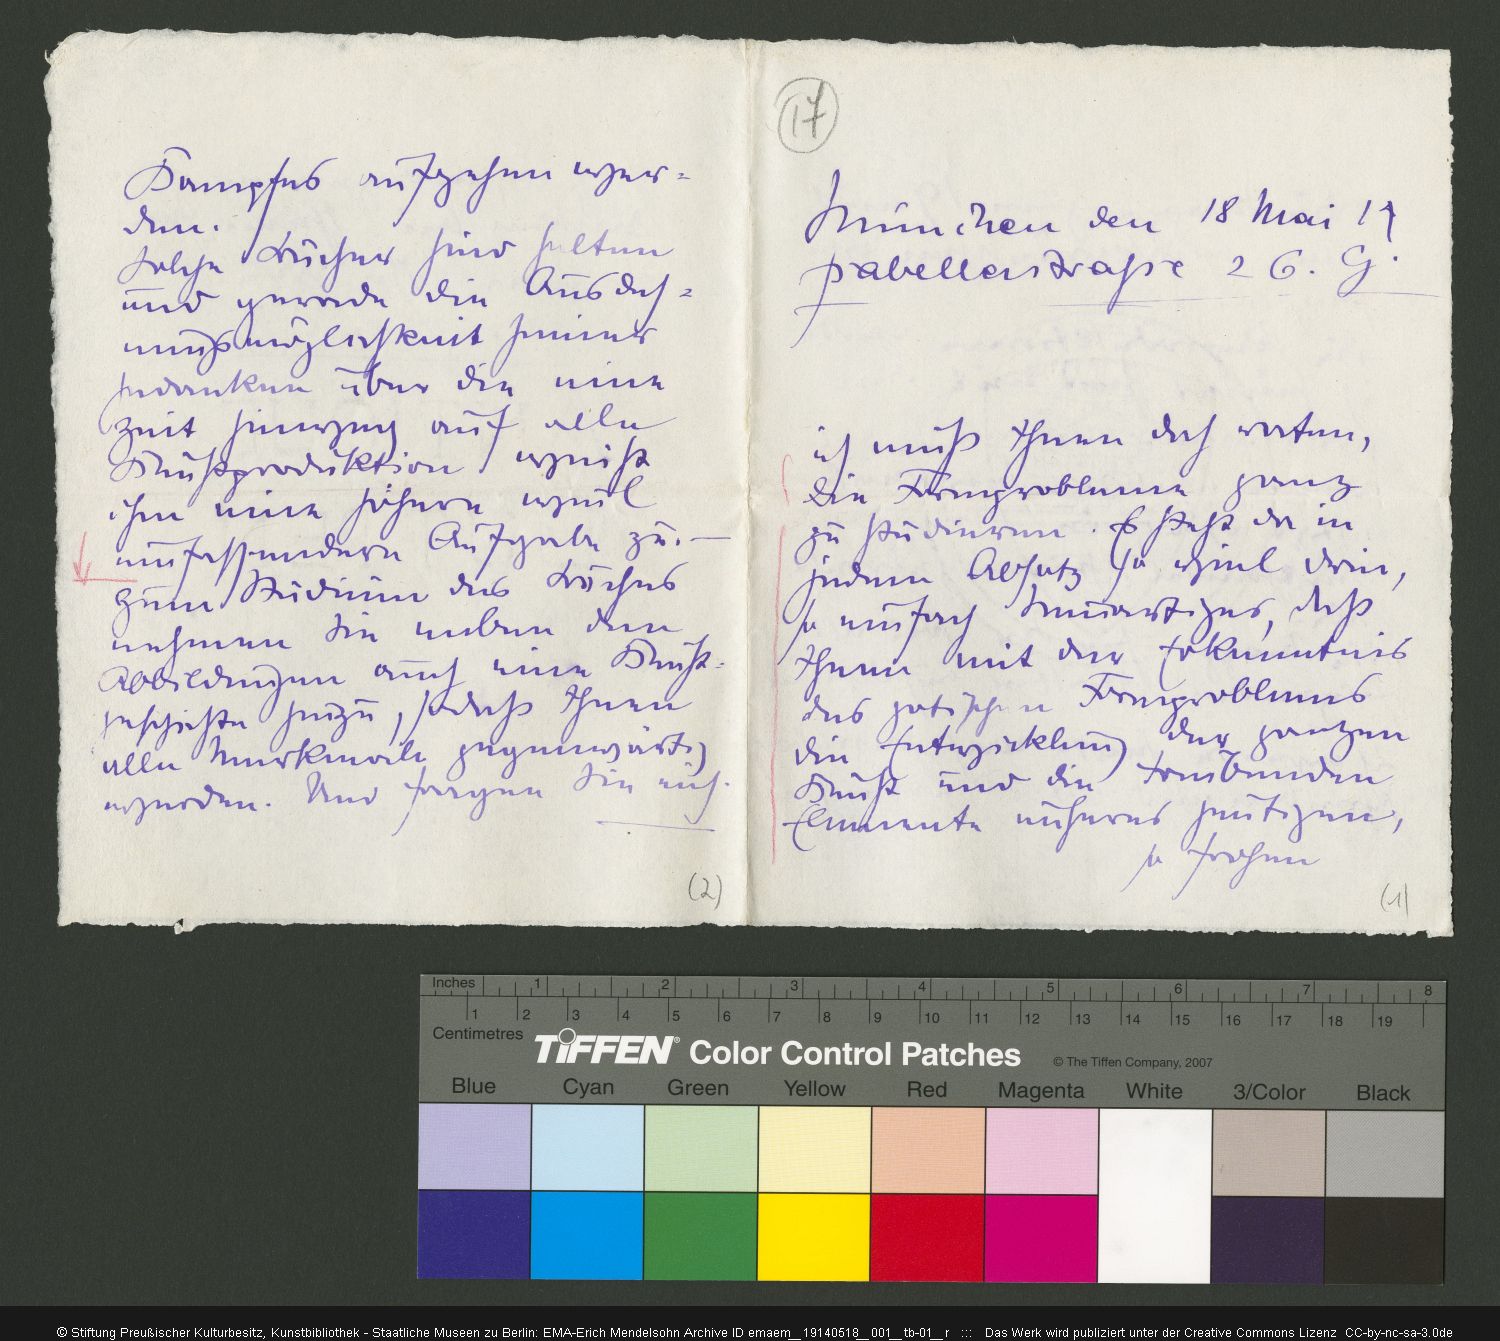 17
München den 18 Mai 14
Isabellastraße 26. G.
ich muß Ihnen doch raten,
die Formprobleme ganz
zu studieren. Es steht da in
jedem Absatz so viel drin,
so einfach Neuartiges, daß
Ihnen mit der Erkenntnis
des gotischen Formproblems
die Entwicklung der ganzen
Kunst und die treibenden
Elemente unseres heutigen,
so frohen
(1)
Kampfes aufgehen wer=
den.
Solche Bücher sind selten
und gerade die Ausdeh=
nungsmöglichkeit seiner
Gedanken über die eine
Zeit hinweg auf alle
Kunstproduktion weist
ihm eine höhere weil
umfassendere Aufgabe zu. —
Zum Studium des Buches
nehmen Sie neben den
Abbildungen auch eine Kunst-
geschichte hinzu, sodaß Ihnen
alle Merkmale gegenwärtig
werden. Und fragen Sie mich.
(2)
Inches 1 2 3 4 5 6 7 8
1 2 3 4 5 6 7 8 9 10 11 12 13 14 15 16 17 18 19
Centimetres
TIFFEN® Color Control Patches © The Tiffen Company, 2007
Blue Cyan Green Yellow Red Magenta White 3/Color Black
© Stiftung Preußischer Kulturbesitz, Kunstbibliothek - Staatliche Museen zu Berlin: EMA-Erich Mendelsohn Archive ID emaem__19140518__001__tb-01__r ::: Das Werk wird publiziert unter der Creative Commons Lizenz CC-by-nc-sa-3.0de